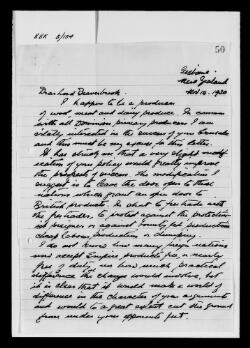 BBK 5/104
50
Gisborne
New Zealand
Nov 14. 1930
Dear Lord Beaverbrook.
I happen to be a producer
of wool meat and dairy produce. In common
with all Dominion primary producers I am
vitally interested in the success of your Crusade
and this must be my excuse for this letter.
It has struck me that a very slight modif-
ication of your policy would greatly improve
the prospect of success. The modification I
suggest is to leave the door open to those
nations which grant an open door to
British products. In short to free trade with
the free traders, to protect against the protection-
ist foreigner or against
cheap labour or dumping.
I do not know how many foreign nations
now accept Empire products free, or nearly
free of duty nor how much practical
difference the change would involve, but
it is clear that it would make a world of
difference in the character of your arguments
and would to a great extent cut the ground
from under your opponents feet.